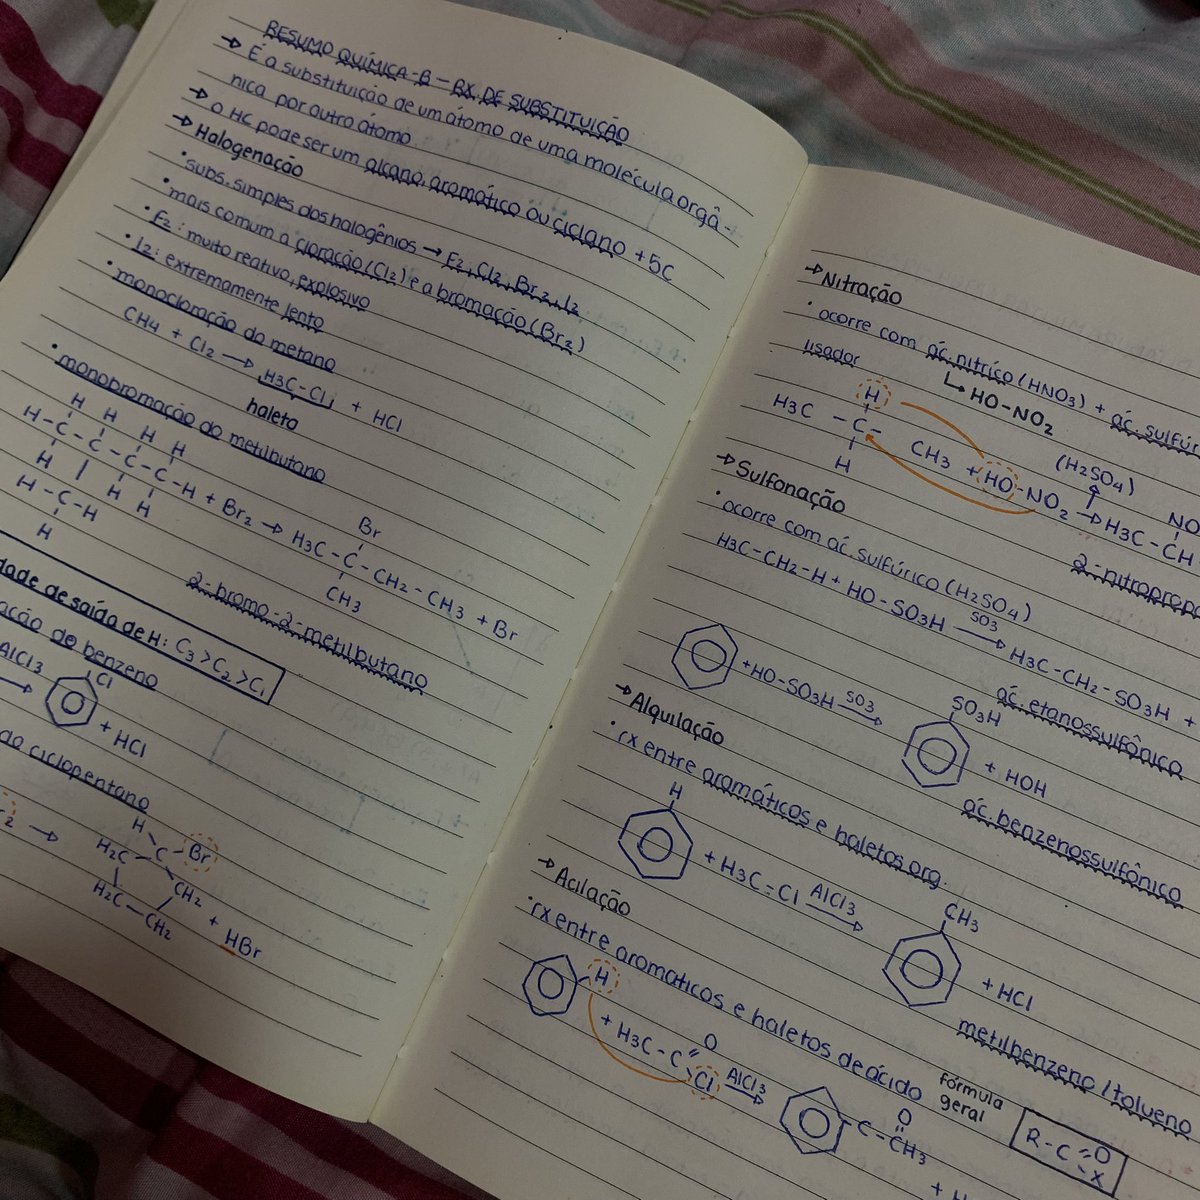 RESUMO QUÍMICA-B — RX. DE SUBSTITUIÇÃO
→ É a substituição de um átomo de uma molécula orgâ-
nica por outro átomo
→ O HC pode ser um alcano, aromático ou ciclano +5C
→ Halogenação
• subs. simples dos halogênios → F2, Cl2, Br2, I2
• mais comum a cloração (Cl2) e a bromação (Br2)
• F2: muito reativo, explosivo
• I2: extremamente lento
• monocloração do metano
CH4 + Cl2 → H3C-Cl + HCl
haleto
• monobromação do metilbutano
H H H H
H-C-C-C-C-H + Br2 → H3C-C-CH2-CH3 + Br
Br
H H H
H-C-H
CH3
H
2-bromo-2-metilbutano
dade de saída de H: C3 > C2 > C1
ação do benzeno
AlCl3
→ Cl + HCl
do ciclopentano
2 → H C Br
H2C CH2 + HBr
H2C-CH2
→ Nitração
• ocorre com ác. nítrico (HNO3) + ác. sulfúr
↳ HO-NO2
lisador
H
H3C - C - CH3 + HO-NO2 → H3C-CH
H
(H2SO4)
NO
2-nitroprop
→ Sulfonação
• ocorre com ác. sulfúrico (H2SO4)
H3C-CH2-H + HO-SO3H SO3 → H3C-CH2-SO3H +
ác. etanossulfônico
+ HO-SO3H SO3 → SO3H + HOH
ác. benzenossulfônico
→ Alquilação
• rx entre aromáticos e haletos org.
H
+ H3C-Cl AlCl3 → CH3 + HCl
metilbenzeno / tolueno
→ Acilação
• rx entre aromáticos e haletos de ácido
H + H3C-C O Cl AlCl3 → C-CH3 O
+ H
fórmula
geral
R-C O X